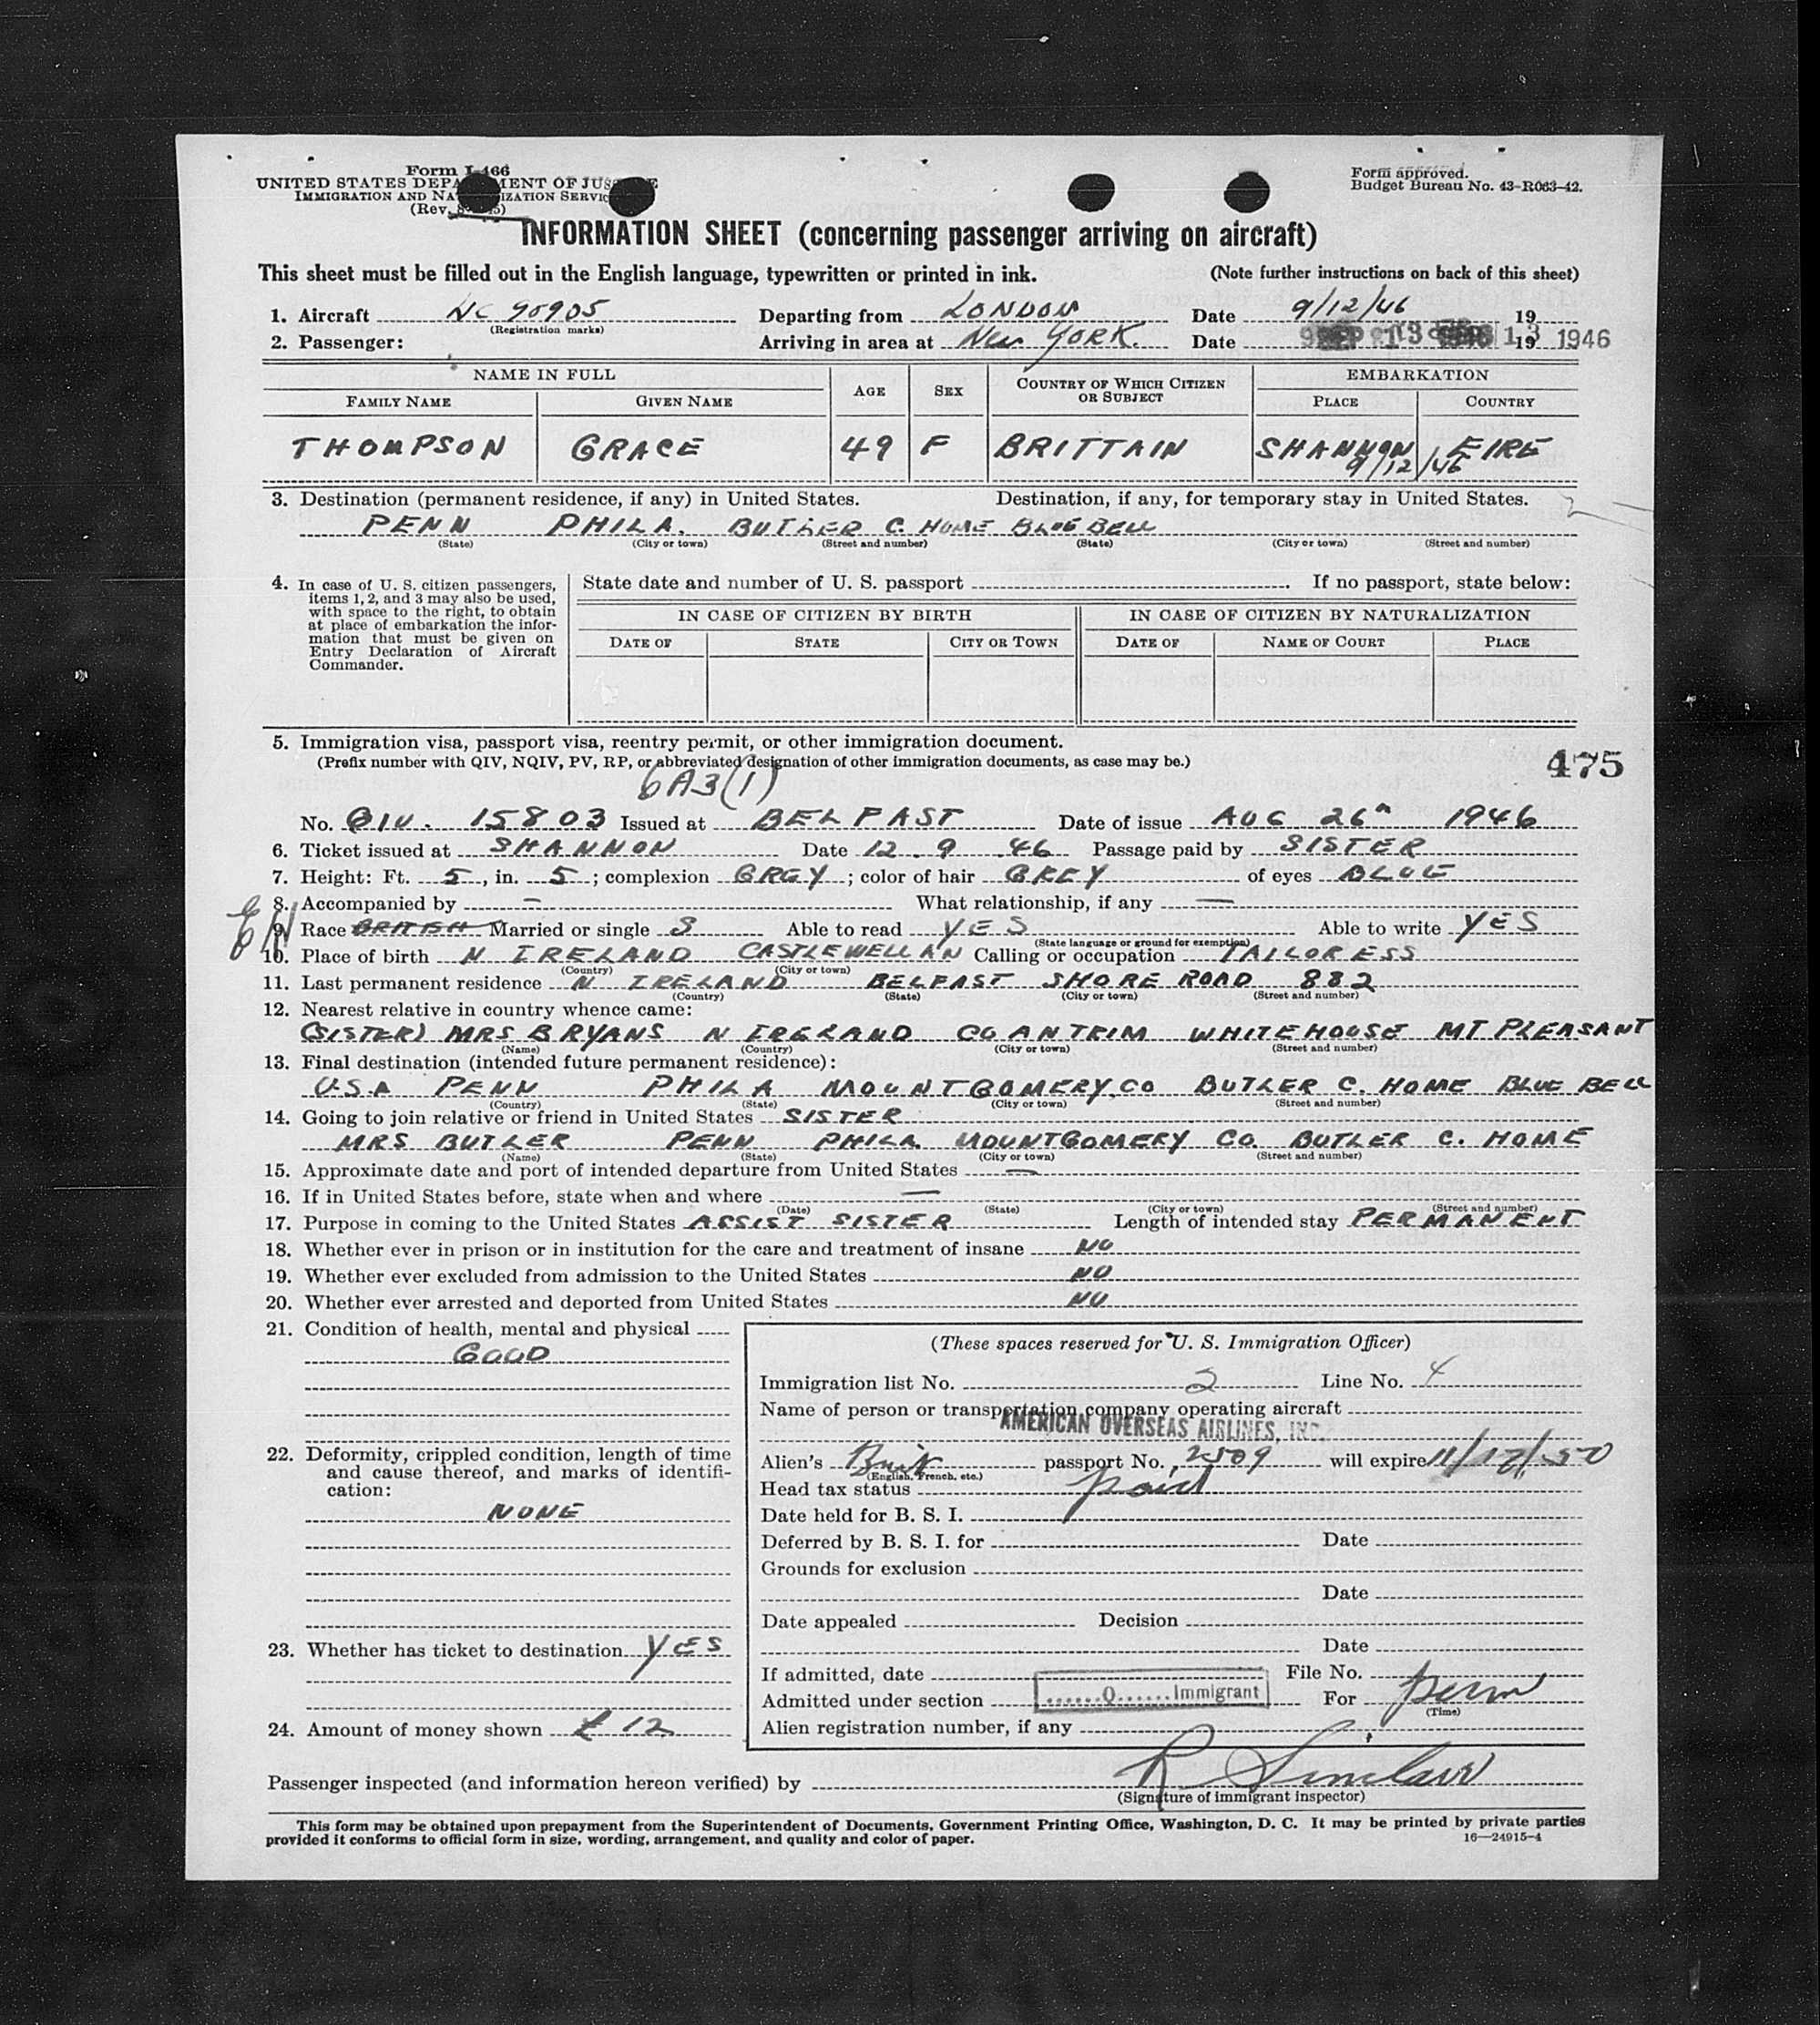 Form I-466
UNITED STATES DEPARTMENT OF JUSTICE
IMMIGRATION AND NATURALIZATION SERVICE
(Rev.
Form approved.
Budget Bureau No. 43-R063-42.
INFORMATION SHEET (concerning passenger arriving on aircraft)
This sheet must be filled out in the English language, typewritten or printed in ink. (Note further instructions on back of this sheet)
1. Aircraft NC 90905 Departing from LONDON Date 9/12/46 19
(Registration marks)
2. Passenger: Arriving in area at New YORK. Date SEP 13 1946 19
NAME IN FULL AGE SEX COUNTRY OF WHICH CITIZEN OR SUBJECT EMBARKATION
FAMILY NAME GIVEN NAME PLACE COUNTRY
THOMPSON GRACE 49 F BRITTAIN SHANNON EIRE
9/12/46
3. Destination (permanent residence, if any) in United States. Destination, if any, for temporary stay in United States.
PENN PHILA. BUTLER C. HOME BLUE BELL
(State) (City or town) (Street and number) (State) (City or town) (Street and number)
4. In case of U. S. citizen passengers, items 1, 2, and 3 may also be used, with space to the right, to obtain at place of embarkation the information that must be given on Entry Declaration of Aircraft Commander.
State date and number of U. S. passport If no passport, state below:
IN CASE OF CITIZEN BY BIRTH IN CASE OF CITIZEN BY NATURALIZATION
DATE OF STATE CITY OR TOWN DATE OF NAME OF COURT PLACE
5. Immigration visa, passport visa, reentry permit, or other immigration document.
(Prefix number with QIV, NQIV, PV, RP, or abbreviated designation of other immigration documents, as case may be.) 475
6A3(1)
No. QIV. 15803 Issued at BELFAST Date of issue AUG 26 1946
6. Ticket issued at SHANNON Date 12.9.46 Passage paid by SISTER
7. Height: Ft. 5, in. 5; complexion GREY; color of hair GREY of eyes BLUE
8. Accompanied by — What relationship, if any —
9. Race BRITISH Married or single S Able to read YES Able to write YES
(State language or ground for exemption)
10. Place of birth N IRELAND CASTLEWELLAN Calling or occupation TAILORESS
(Country) (City or town)
11. Last permanent residence N IRELAND BELFAST SHORE ROAD 882
(Country) (State) (City or town) (Street and number)
12. Nearest relative in country whence came:
(SISTER) MRS BRYANS N IRELAND CO ANTRIM WHITEHOUSE MT PLEASANT
(Name) (Country) (City or town) (Street and number)
13. Final destination (intended future permanent residence):
USA PENN PHILA MOUNTGOMERY.CO BUTLER C. HOME BLUE BELL
(Country) (State) (City or town) (Street and number)
14. Going to join relative or friend in United States SISTER
MRS BUTLER PENN PHILA MOUNTGOMERY CO. BUTLER C. HOME
(Name) (State) (City or town) (Street and number)
15. Approximate date and port of intended departure from United States —
16. If in United States before, state when and where —
(Date) (State) (City or town) (Street and number)
17. Purpose in coming to the United States ASSIST SISTER Length of intended stay PERMANENT
18. Whether ever in prison or in institution for the care and treatment of insane NO
19. Whether ever excluded from admission to the United States NO
20. Whether ever arrested and deported from United States NO
21. Condition of health, mental and physical
GOOD
22. Deformity, crippled condition, length of time and cause thereof, and marks of identification:
NONE
23. Whether has ticket to destination YES
24. Amount of money shown £ 12
(These spaces reserved for U. S. Immigration Officer)
Immigration list No. 2 Line No. 4
Name of person or transportation company operating aircraft
AMERICAN OVERSEAS AIRLINES, INC.
Alien's Brit passport No. 2509 will expire 11/12/50
(English, French, etc.)
Head tax status paid
Date held for B. S. I.
Deferred by B. S. I. for Date
Grounds for exclusion
Date
Date appealed Decision
Date
If admitted, date File No.
Admitted under section Q Immigrant For perm
(Time)
Alien registration number, if any
Passenger inspected (and information hereon verified) by R Sinclair
(Signature of immigrant inspector)
This form may be obtained upon prepayment from the Superintendent of Documents, Government Printing Office, Washington, D. C. It may be printed by private parties
provided it conforms to official form in size, wording, arrangement, and quality and color of paper. 16—24915-4